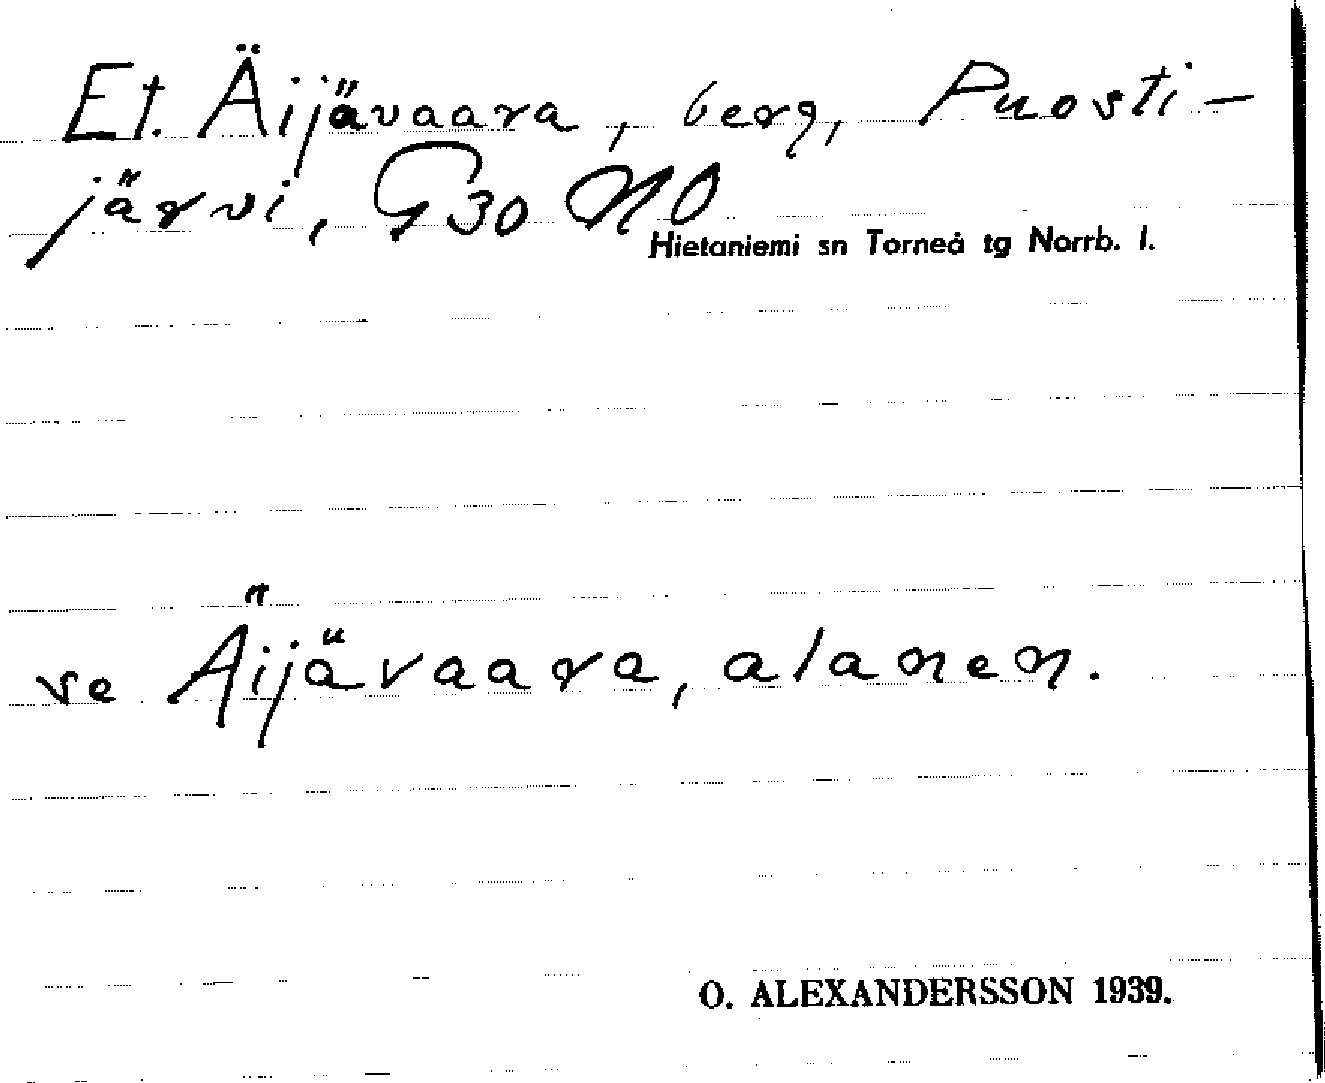 Et. Äijävaara, berg, Puosti-
järvi, G30 NO
Hietaniemi sn Torneå tg Norrb. l.
se Äijävaara, alanen.
O. ALEXANDERSSON 1939.